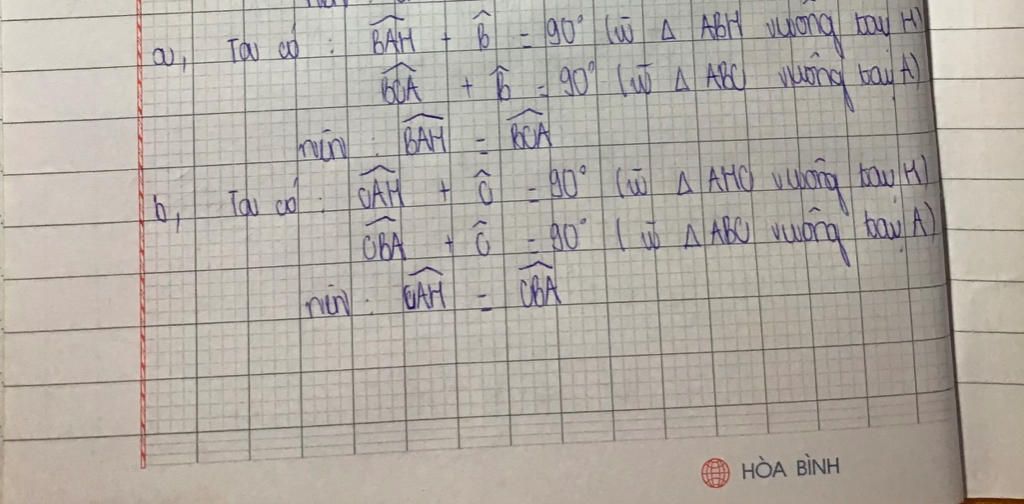 a, Ta có : BAH + B = 90° (vì Δ ABH vuông tại H)
BCA + B = 90° (vì Δ ABC vuông tại A)
nên : BAH = BCA
b, Ta có : CAH + C = 90° (vì Δ AHC vuông tại H)
CBA + C = 90° (vì Δ ABC vuông tại A)
nên : CAH = CBA
HÒA BÌNH